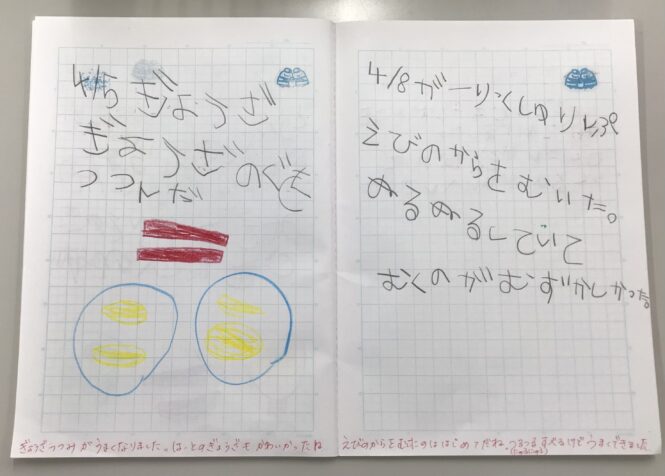 4/5 ぎょうざ
ぎょうざのぐを
つつんだ
ぎょうざつつみがうまくなりました。はーとのぎょうざもかわいかったね
4/8 がーりっくしゅりんぷ
えびのからをむいた。
ぬるぬるしていて
むくのがむずかしかった。
えびのからをむくのははじめてだね。つるつるすべるけどうまくできました